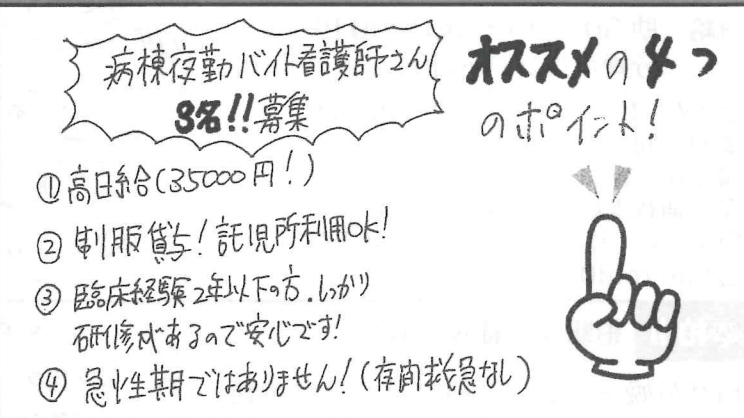 病棟夜勤バイト看護師さん
3名!!募集
オススメの4つ
のポイント!
①高日給(35000円!)
②制服貸与!託児所利用OK!
③臨床経験2年以下の方、しっかり
研修があるので安心です!
④急性期ではありません!(夜間救急なし)